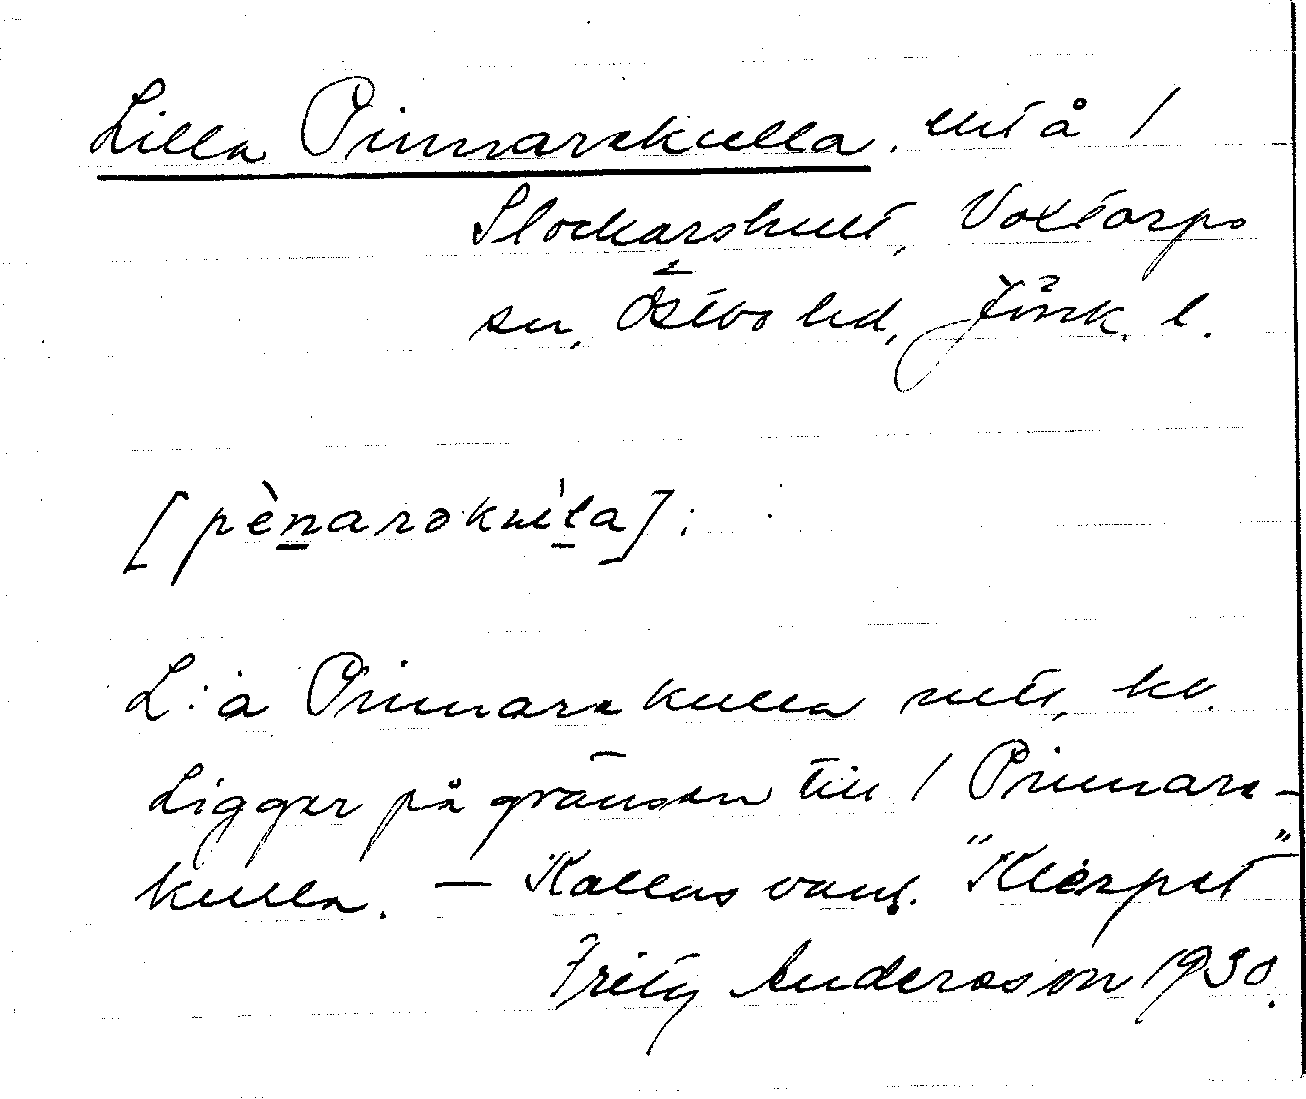 Lilla Pinnarekulla, utå 1
Slockarshult, Voxtorps
sn, Östbo hd, Jönk. l.
[pènarəkùla]:
L:a Pinnarekulla utä, ht.
Ligger på gränsen till 1 Pinnare-
kulla. — Kallas vanl. "Klerpet"
Frity Andersson 1930.